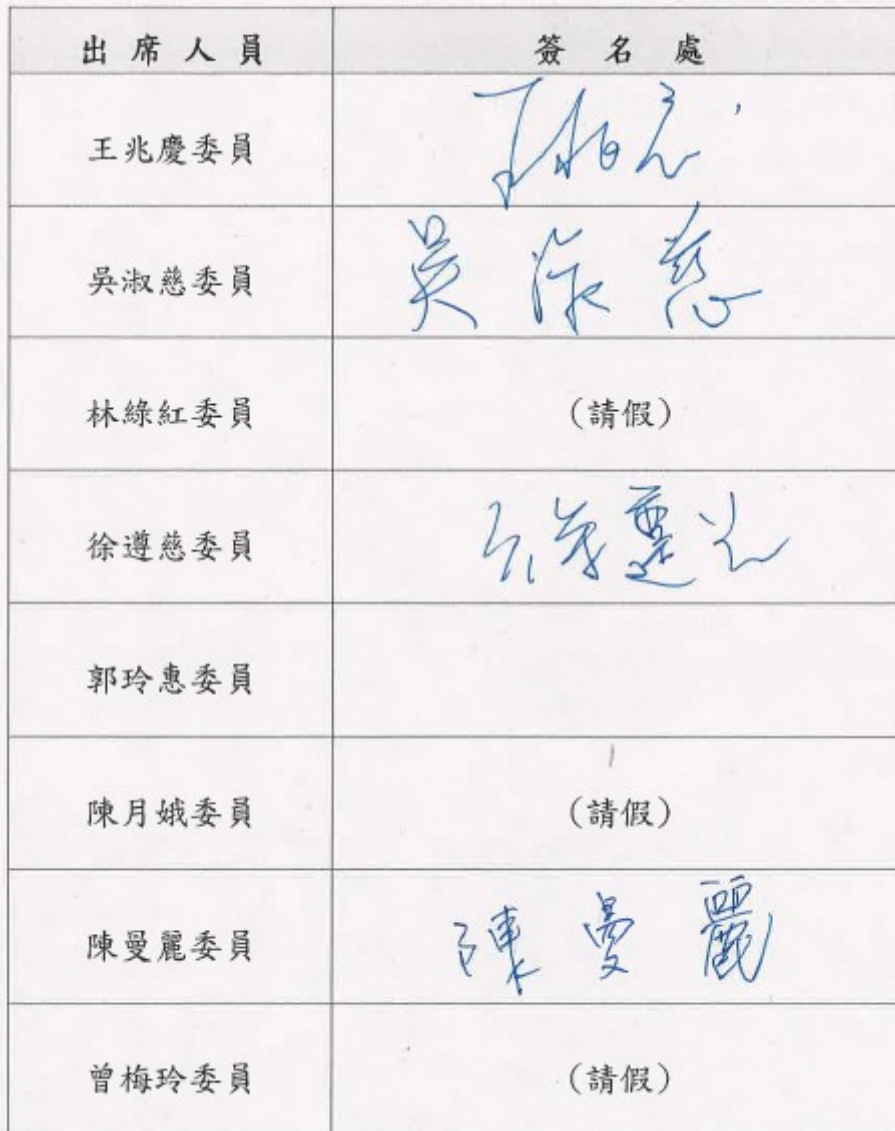 出席人員 簽名處
王兆慶委員
吳淑慈委員 吳淑慈
林綠紅委員 (請假)
徐遵慈委員 徐遵慈
郭玲惠委員
陳月娥委員 (請假)
陳曼麗委員 陳曼麗
曾梅玲委員 (請假)